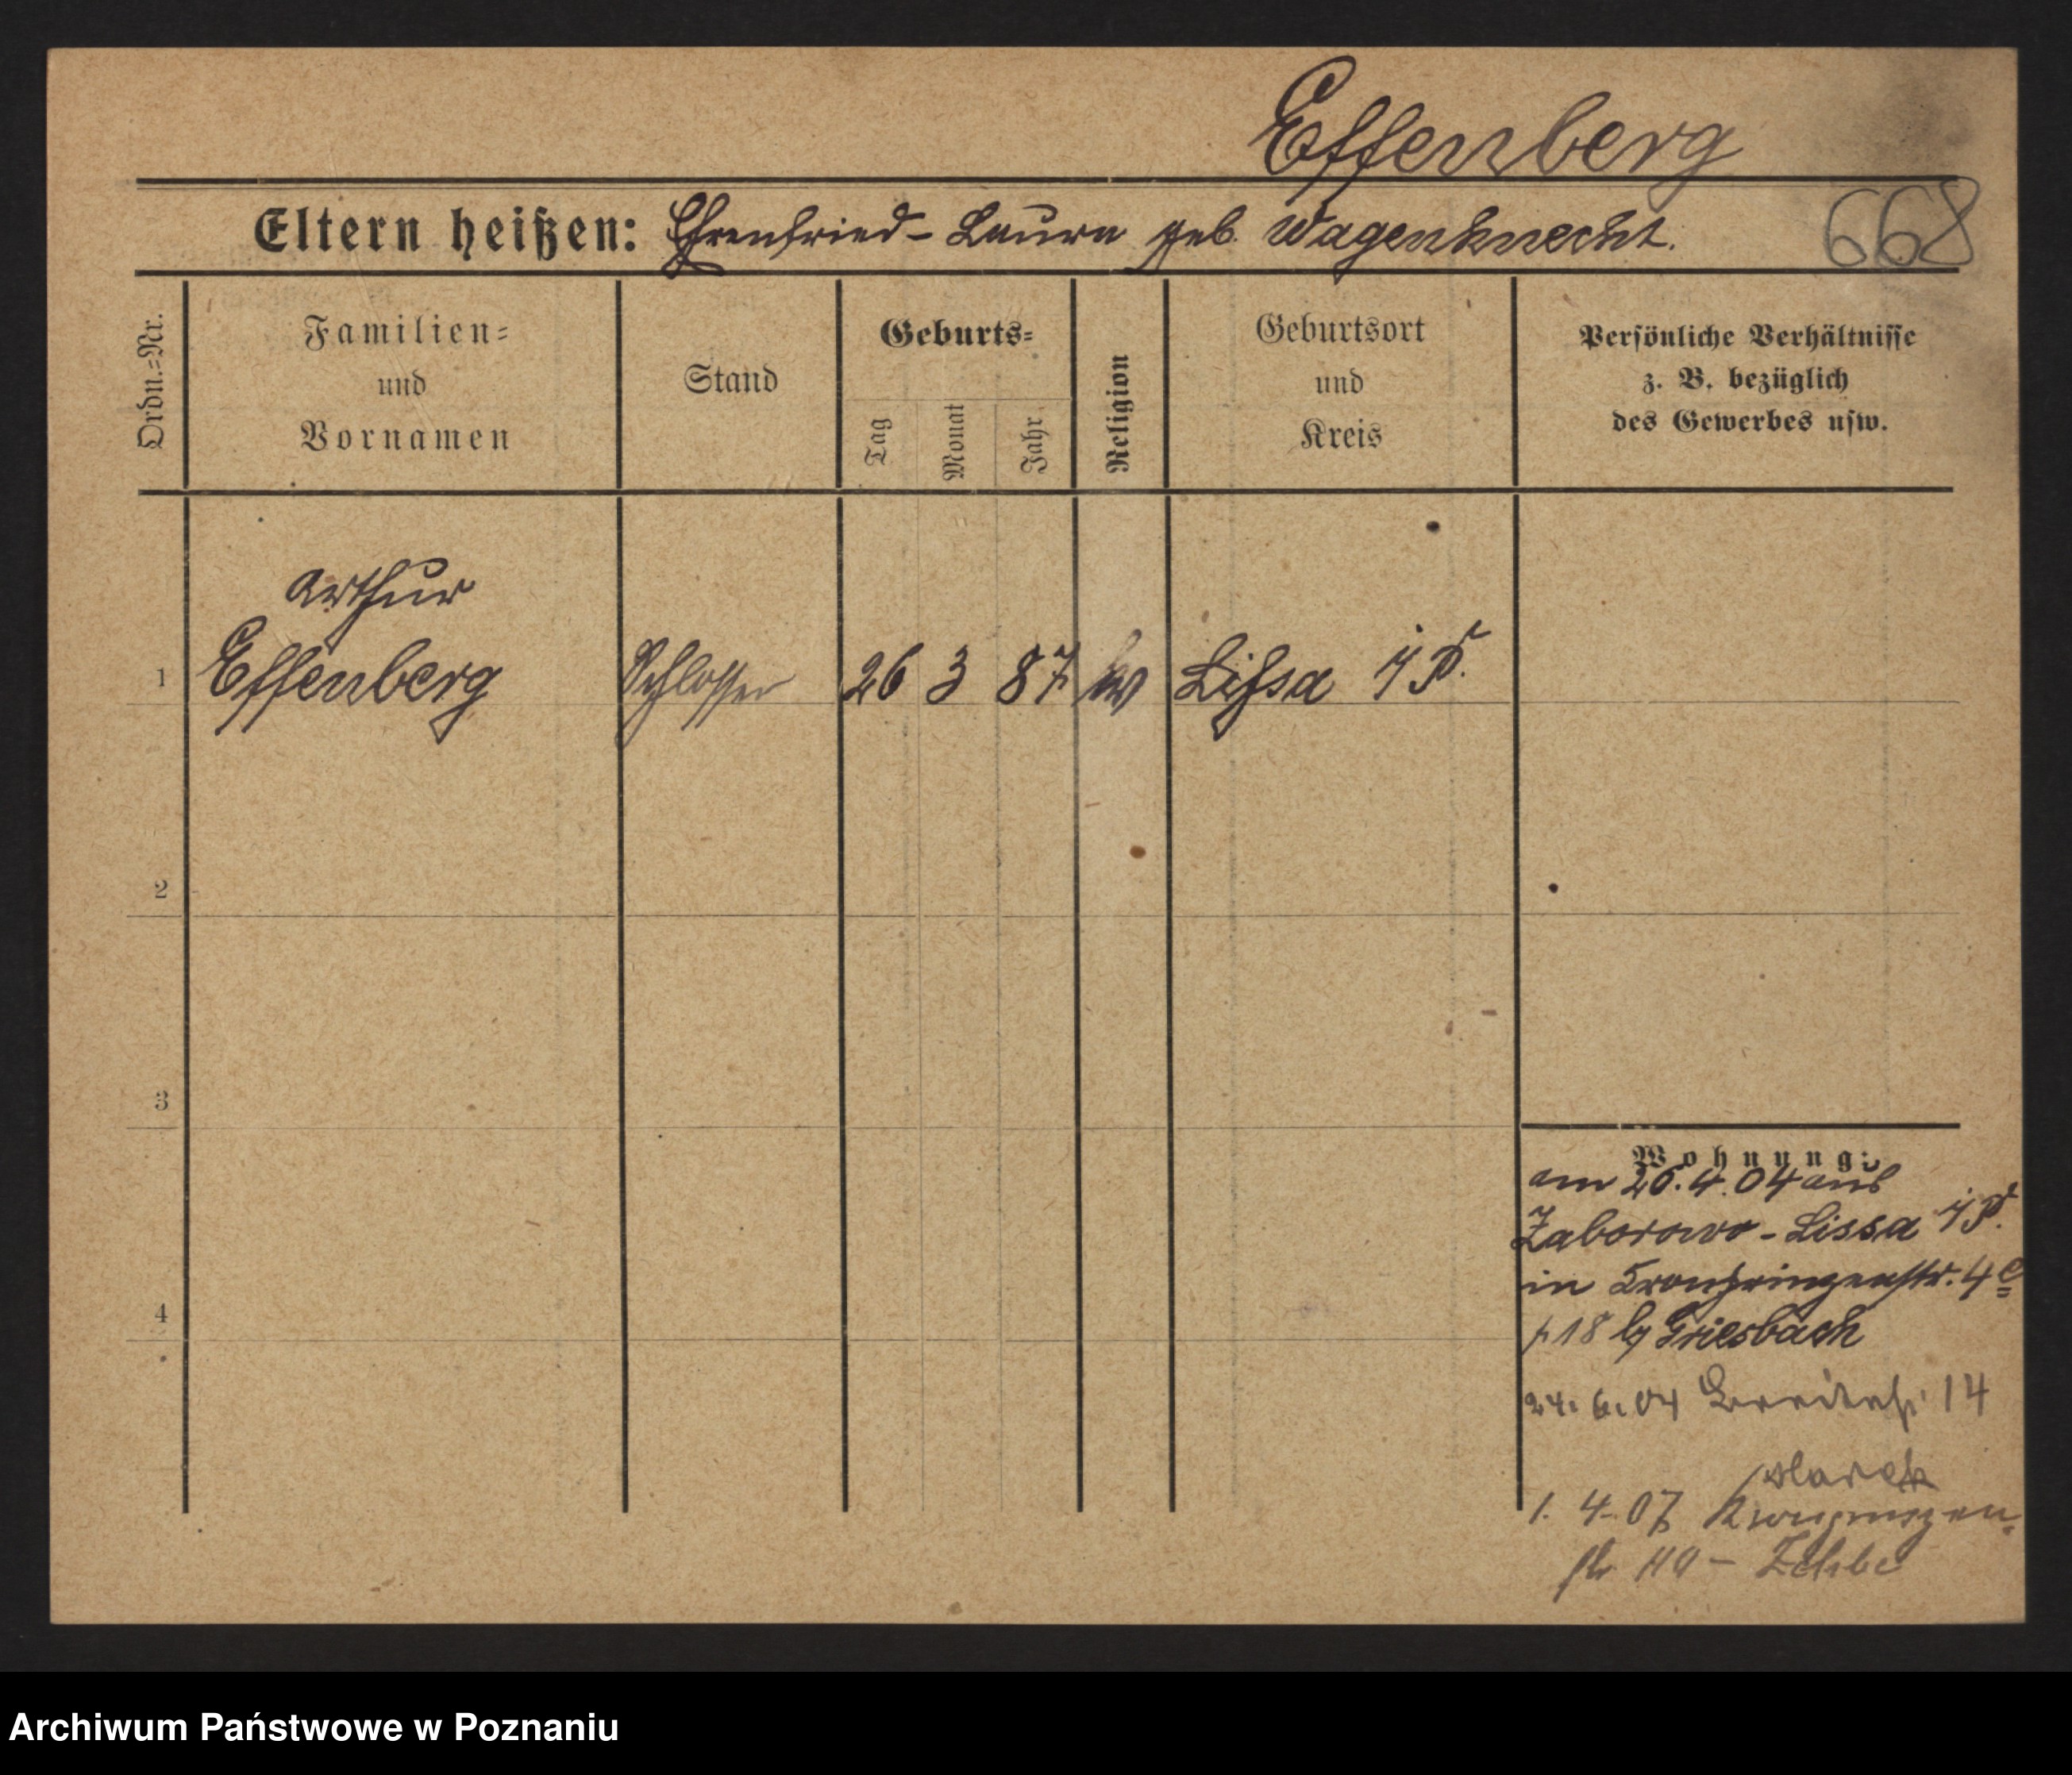 Effenberg
Eltern heißen: Ehrenfried - Laura geb. Wagenknecht.
668
Ordn.=Nr.
Familien=
und
Vornamen
Stand
Geburts=
Tag
Monat
Jahr
Religion
Geburtsort
und
Kreis
Persönliche Verhältnisse
z. B. bezüglich
des Gewerbes usw.
Arthur
1 Effenberg Schlosser 26 3 87 ev Lissa i P.
2
3
4
Wohnung:
am 26.4.04 aus
Zaborowo - Lissa i P.
in Kronprinzenstr. 4
18 Griesbach
24. 6. 04 Breitestr. 14
1. 4. 07 Kronprinzen-
str
Archiwum Państwowe w Poznaniu